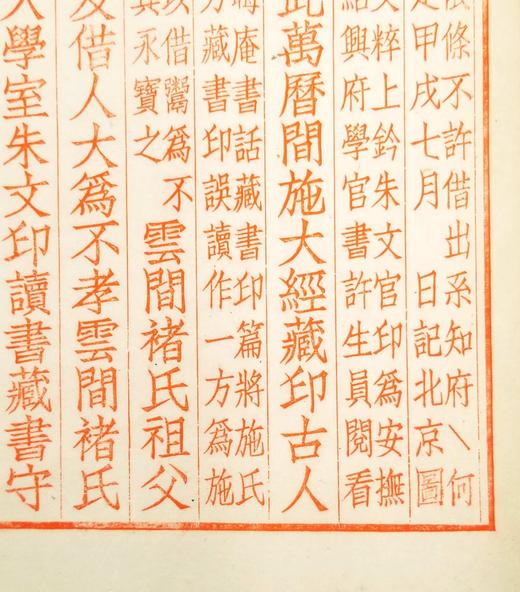 條不許借出系知府\何
甲戌七月　日記北京圖
文粹上鈐朱文官印爲安撫
紹興府學官書許生員閱看
此萬曆間施大經藏印古人
晦庵書話藏書印篇將施氏
方藏書印誤讀作一方爲施
以借鬻爲不
其永寶之
雲間褚氏祖父
及借人大爲不孝雲間褚氏
學室朱文印讀書藏書守